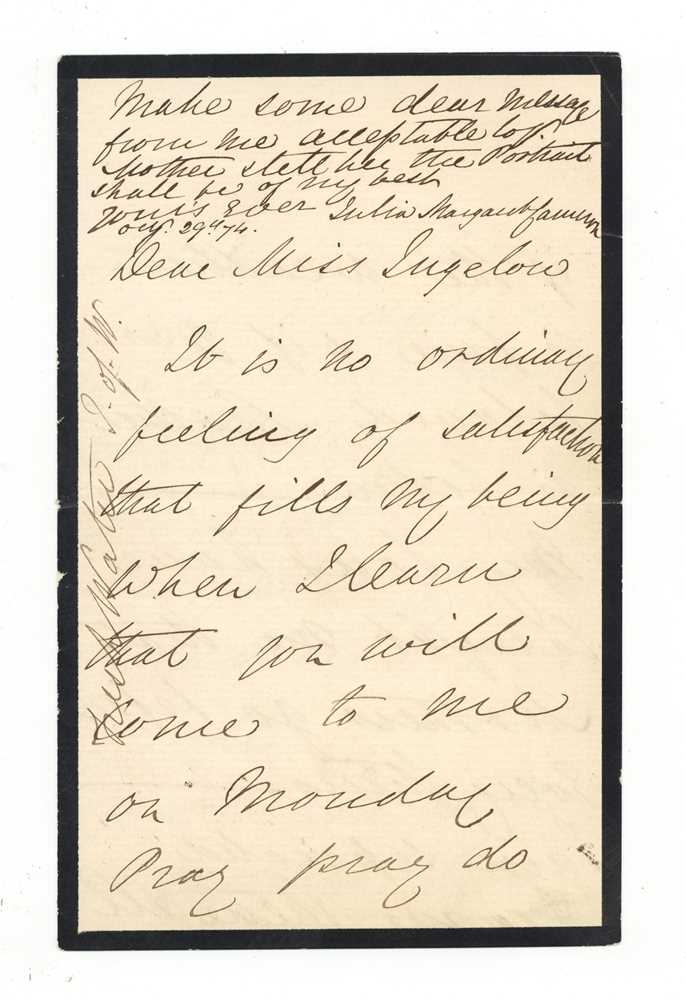 Make some dear message
from me acceptable to yr.
Mother & tell her the Portrait
shall be of my best
Yours Ever Julia Margaret Cameron
29th 74.
Dear Miss Ingelow
It is no ordinary
feeling of satisfaction
that fills my being
when I learn
that you will
come to me
on Monday
Pray pray do
Fresh Water I. of W.